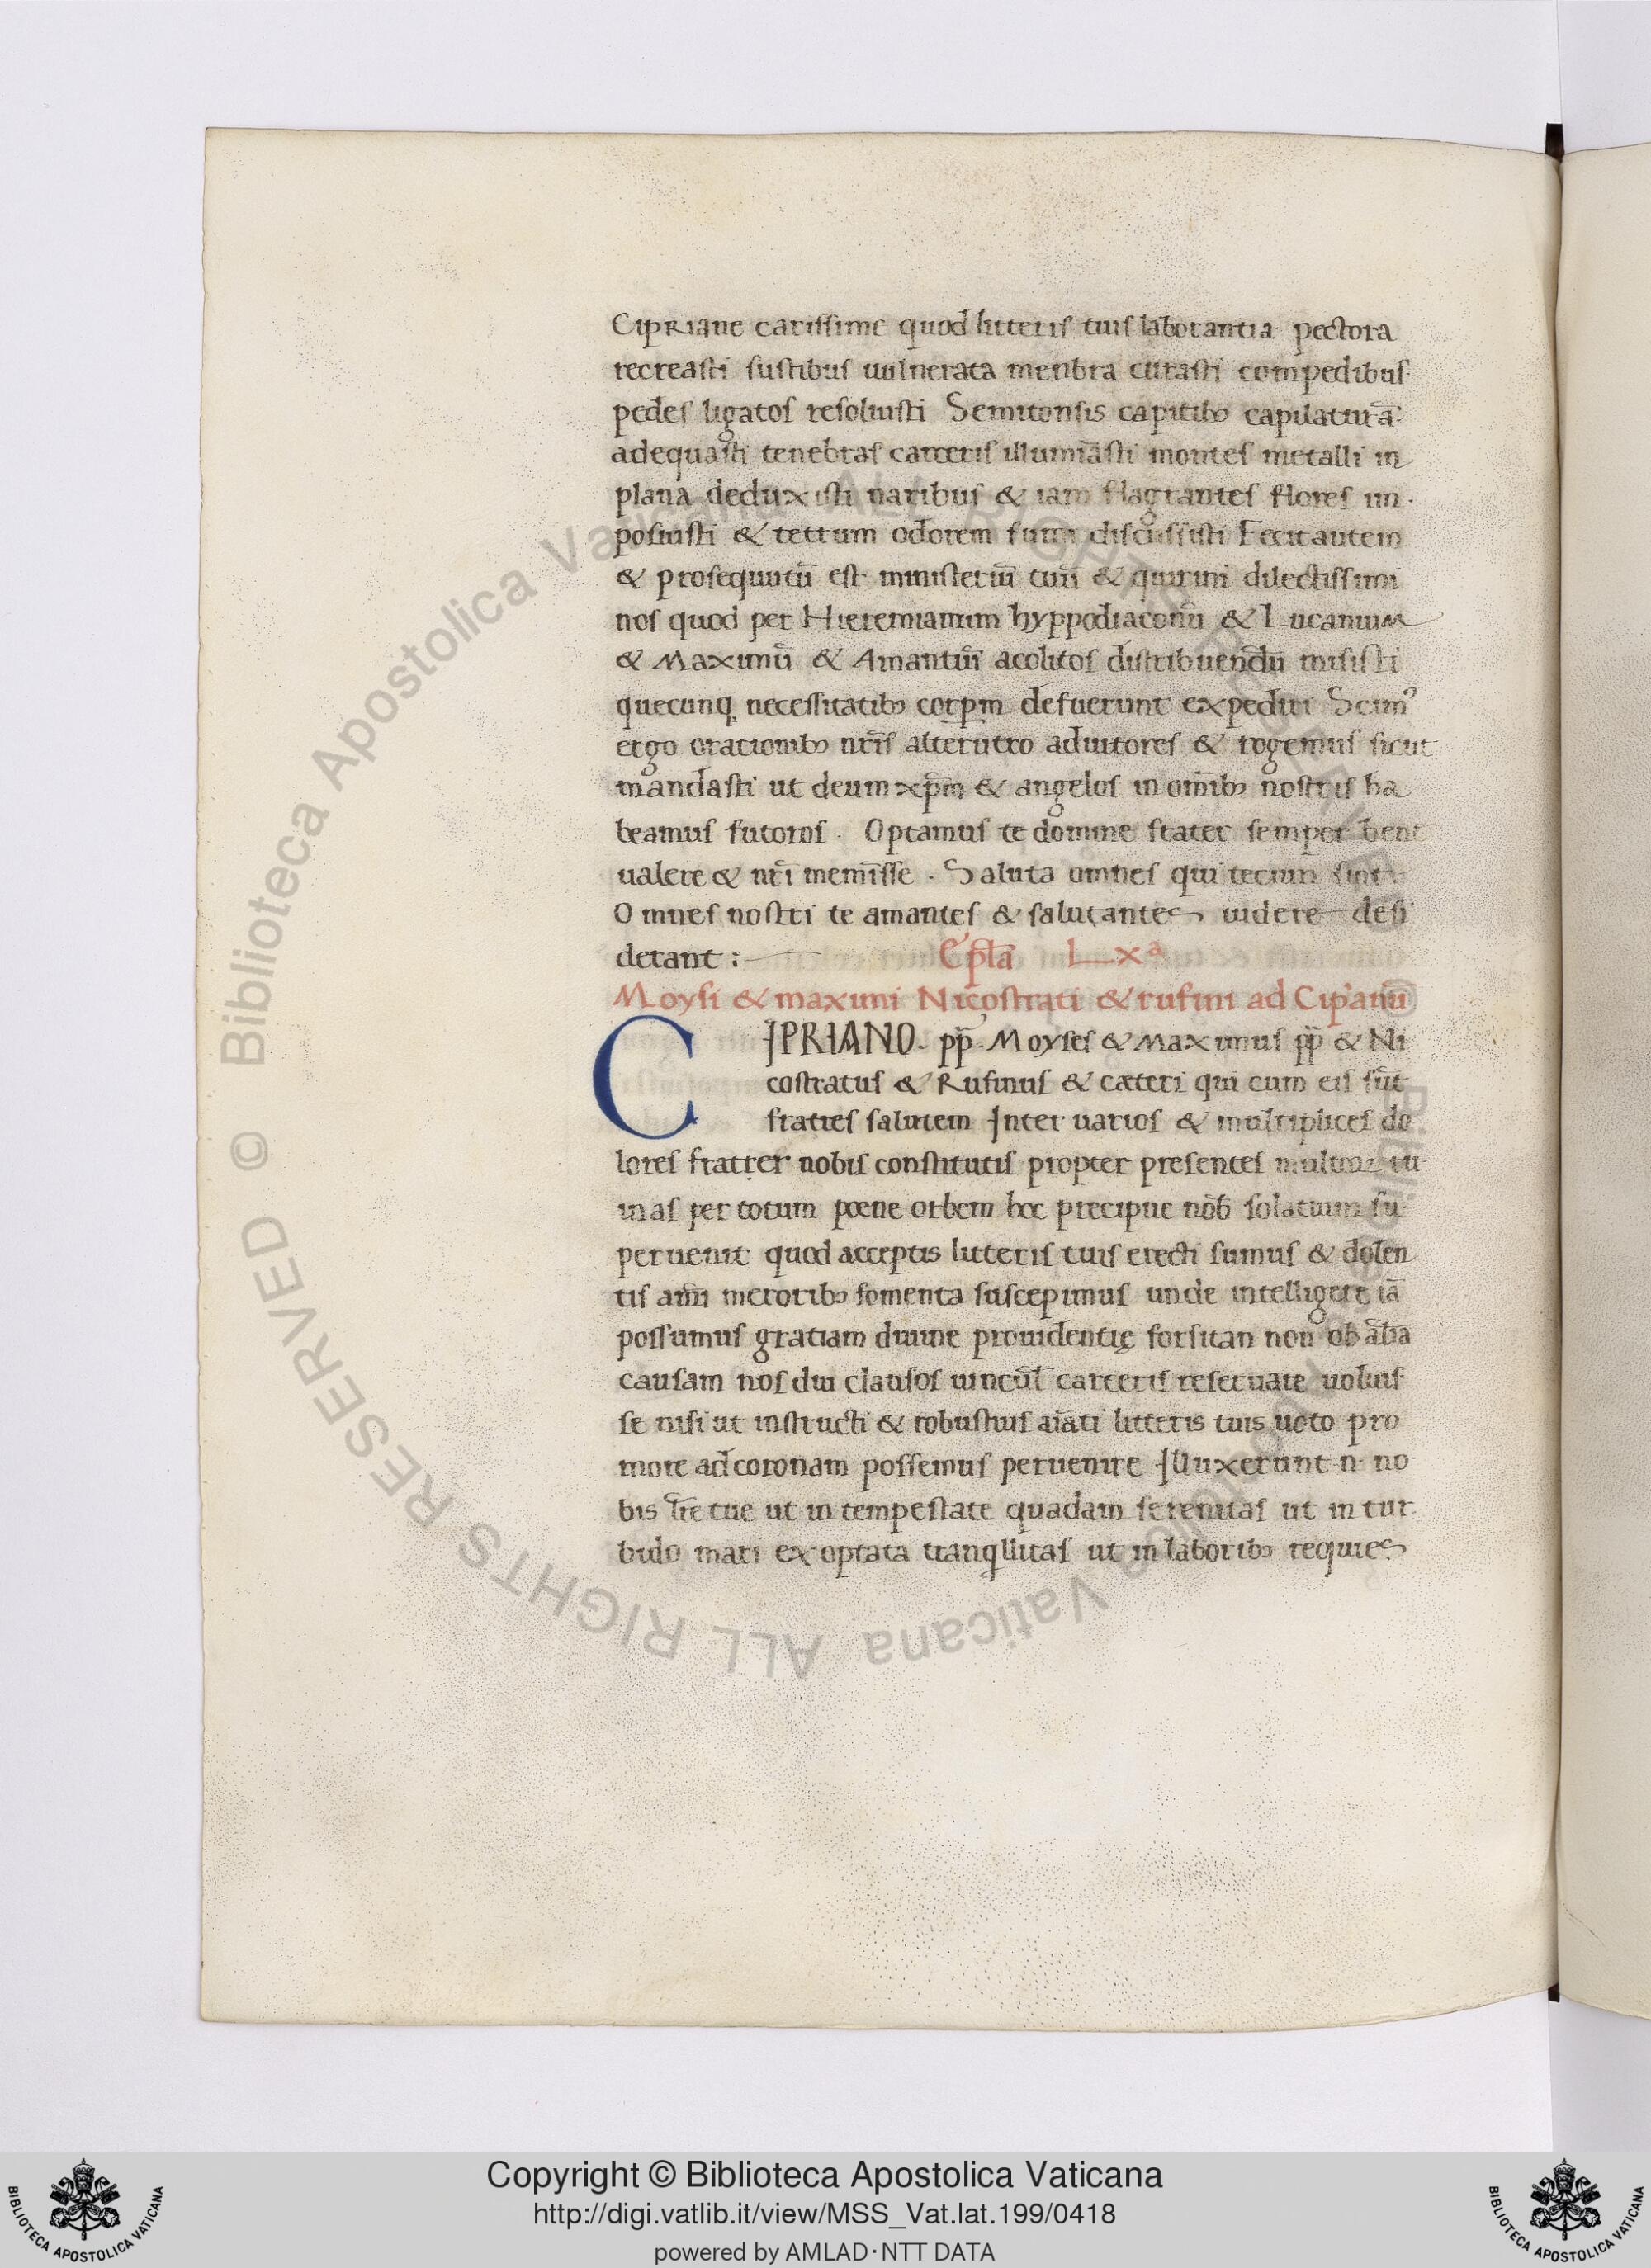 Cipriane carissime quod litteris tuis laborantia pectora
recreasti fustibus uulnerata menbra curasti compedibus
pedes ligatos resoluisti Semitonsis capitibꝫ capilaturā
adequasti tenebras carceris illumiāsti montes metalli in
plana deduxisti naribus & iam flagrantes flores im
posuisti & tetrum odorem fumi discussisti Fecit autem
& prosequutū est ministeriū tuū & quirini dilectissimi
nos quod per Hieremianum hyppodiaconū & Lucanum
& Maximū & Amantiū acolitos distribuendū misisti
quecunqꝫ necessitatibꝫ corꝑm defuerunt expediri Simꝰ
ergo orationibꝫ nr̄is alterutro adiutores & rogemus sicut
mandasti ut deum xp̄m & angelos in om̄ibꝫ nostris ha
beamus futoros . Optamus te domine frater semper bene
ualere & nr̄i memīsse . Saluta omnes qui tecum sint
Omnes nostri te amantes & salutantes uidere desi
derant :
Ep̄la Lxᵃ
Moysi & maximi Nicostrati & rufini ad Cip'anū
CIPRIANO . pp̄ . Moyses & Maximus pp̄ & Ni
costratus & Rufinus & cæteri qui cum eis sūt
fratres salutem Inter uarios & multiplices do
lores fratrer nobis constitutis propter presentes multorꝫ ru
inas per totum pœne orbem hoc precipue nob̄ solatium su
peruenit quod acceptis litteris tuis erecti sumus & dolen
tis aīmi meroribꝫ fomenta suscepimus unde intelligere iā
possumus gratiam diuine prouidentię forsitan non ob aliā
causam nos diu clausos uincul̄ carceris reseruare uoluis
se nisi ut instructi & robustius aīati litteris tuis uoto pro
more ad coronam possemus peruenire Illuxerunt .n. no
bis lr̄e tue ut in tempestate quadam serenitas ut in tur
bido mari exoptata tranqllitas ut in laboribꝫ requies
Copyright © Biblioteca Apostolica Vaticana
http://digi.vatlib.it/view/MSS_Vat.lat.199/0418
powered by AMLAD·NTT DATA
BIBLIOTECA APOSTOLICA VATICANA
BIBLIOTECA APOSTOLICA VATICANA
© Biblioteca Apostolica Vaticana ALL RIGHTS RESERVED
© Biblioteca Apostolica Vaticana ALL RIGHTS RESERVED